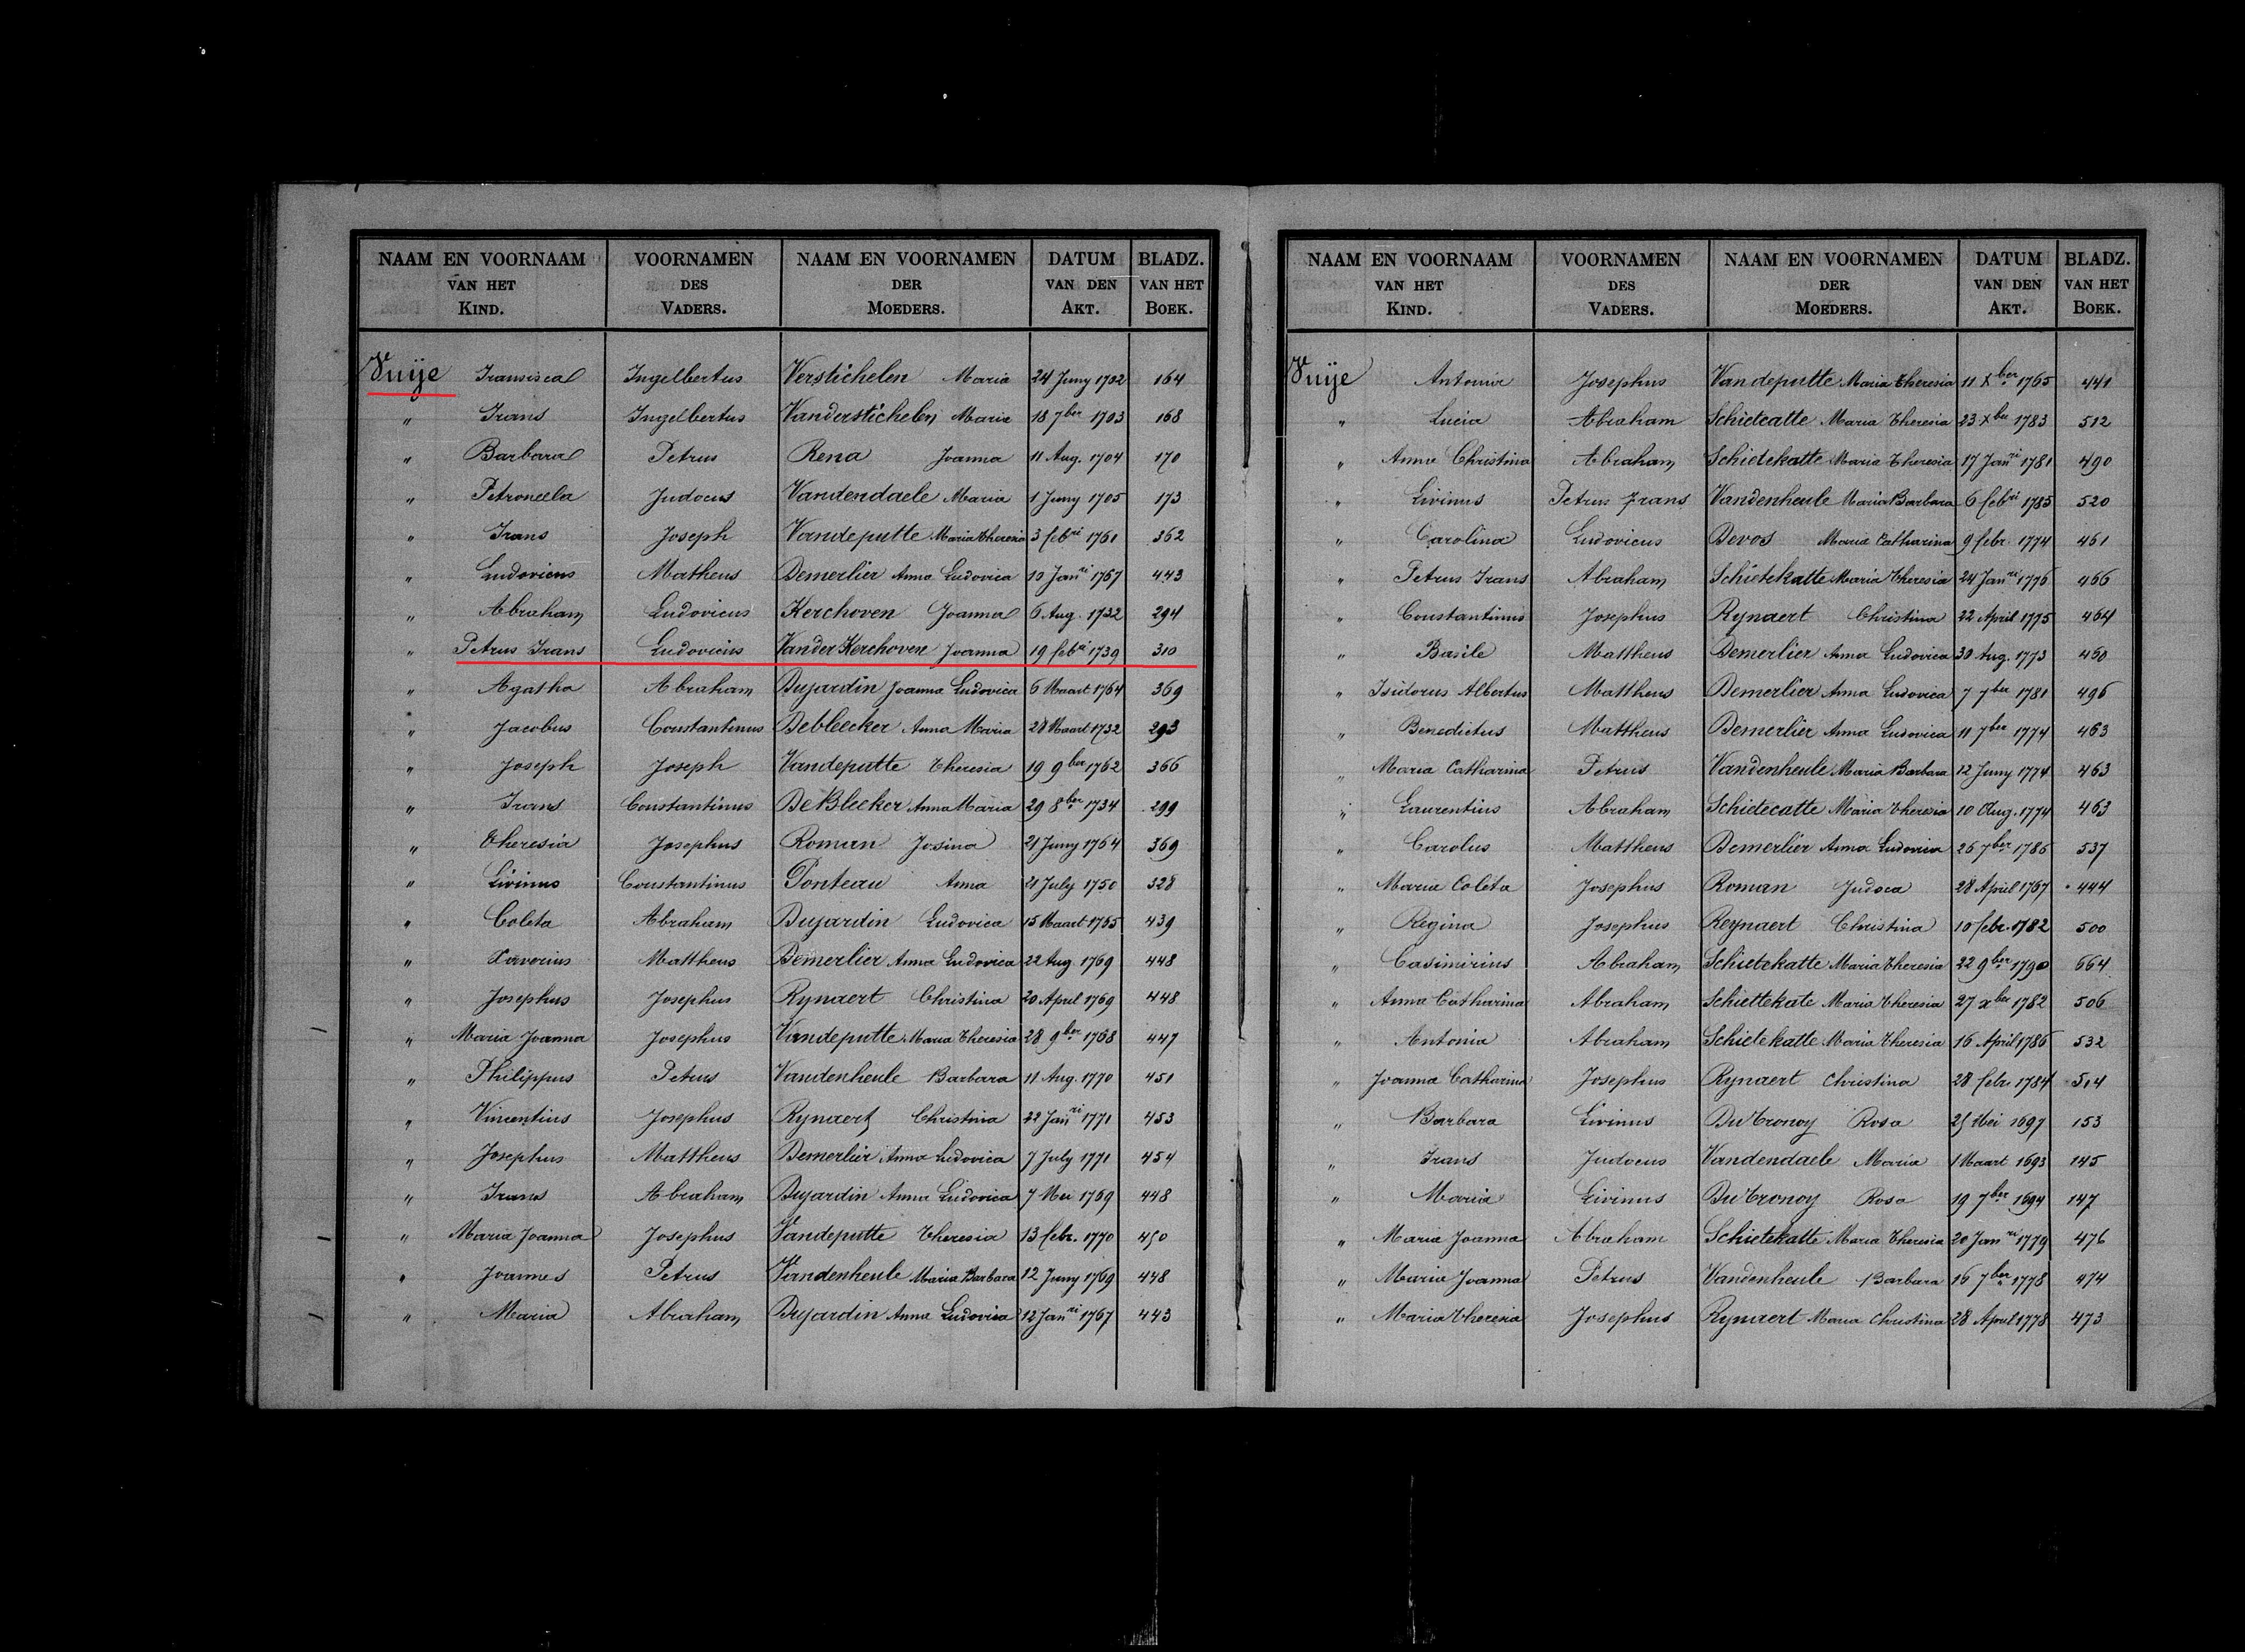 NAAM EN VOORNAAM VAN HET KIND. VOORNAMEN DES VADERS. NAAM EN VOORNAMEN DER MOEDERS. DATUM VAN DEN AKT. BLADZ. VAN HET BOEK.
Vuije Fransisca Ingelbertus Verstichelen Maria 24 Juny 1702 164
" Frans Ingelbertus Vanderstichelen Maria 18 7ber 1703 168
" Barbara Petrus Rena Joanna 11 Aug. 1704 170
" Petronella Judocus Vandendaele Maria 1 Juny 1705 173
" Frans Joseph Vandeputte Maria Theresia 3 febri 1761 362
" Ludovicus Matheus Demerlier Anna Ludovica 10 Janri 1767 443
" Abraham Ludovicus Kerchoven Joanna 6 Aug. 1732 294
" Petrus Frans Ludovicus Vander Kerchoven Joanna 19 febri 1739 310
" Agatha Abraham Dujardin Joanna Ludovica 6 Maart 1764 369
" Jacobus Constantinus Debleecker Anna Maria 28 Maart 1732 293
" Joseph Joseph Vandeputte Theresia 19 9ber 1762 366
" Frans Constantinus DeBleeker Anna Maria 29 8ber 1734 299
" Theresia Josephus Roman Josina 21 Juny 1764 369
" Livinus Constantinus Ponteau Anna 21 July 1750 328
" Coleta Abraham Dujardin Ludovica 15 Maart 1765 439
" Xaverius Mattheus Demerlier Anna Ludovica 22 Aug. 1769 448
" Josephus Josephus Rynaert Christina 20 April 1769 448
" Maria Joanna Josephus Vandeputte Maria Theresia 28 9ber 1768 447
" Philippus Petrus Vandenheule Barbara 11 Aug. 1770 451
" Vincentius Josephus Rynaert Christina 22 Janri 1771 453
" Josephus Mattheus Demerlier Anna Ludovica 7 July 1771 454
" Frans Abraham Dujardin Anna Ludovica 7 Mei 1769 448
" Maria Joanna Josephus Vandeputte Theresia 13 febr. 1770 450
" Joannes Petrus Vandenheule Maria Barbara 12 Juny 1769 448
" Maria Abraham Dujardin Anna Ludovica 12 Janri 1767 443
NAAM EN VOORNAAM VAN HET KIND. VOORNAMEN DES VADERS. NAAM EN VOORNAMEN DER MOEDERS. DATUM VAN DEN AKT. BLADZ. VAN HET BOEK.
Vuije Antonia Josephus Vandeputte Maria Theresia 11 Xber 1765 441
" Lucia Abraham Schietcatte Maria Theresia 23 Xber 1783 512
" Anna Christina Abraham Schietekatte Maria Theresia 17 Janri 1781 490
" Livinus Petrus Frans Vandenheule Maria Barbara 6 febri 1785 520
" Carolina Ludovicus Devos Maria Catharina 9 febr. 1774 461
" Petrus Frans Abraham Schietekatte Maria Theresia 24 Janri 1776 466
" Constantinus Josephus Rynaert Christina 22 April 1775 464
" Basile Mattheus Demerlier Anna Ludovica 30 Aug. 1773 460
" Isidorus Albertus Mattheus Demerlier Anna Ludovica 7 7ber 1781 496
" Benedictus Mattheus Demerlier Anna Ludovica 11 7ber 1774 463
" Maria Catharina Petrus Vandenheule Maria Barbara 12 Juny 1774 463
" Laurentius Abraham Schietecatte Maria Theresia 10 Aug. 1774 463
" Carolus Mattheus Demerlier Anna Ludovica 26 7ber 1786 537
" Maria Coleta Josephus Roman Judoca 28 April 1767 444
" Regina Josephus Reynaert Christina 10 febr. 1782 500
" Casimirius Abraham Schietekatte Maria Theresia 22 9ber 1790 664
" Anna Catharina Abraham Schiettekate Maria Theresia 27 xber 1782 506
" Antonia Abraham Schietekatte Maria Theresia 16 April 1786 532
" Joanna Catharina Josephus Rynaert Christina 28 febr. 1784 514
" Barbara Livinus DuTronoy Rosa 25 Mei 1697 153
" Frans Judocus Vandendaele Maria 1 Maart 1693 145
" Maria Livinus DuTronoy Rosa 19 7ber 1694 147
" Maria Joanna Abraham Schietekatte Maria Theresia 20 Janri 1779 476
" Maria Joanna Petrus Vandenheule Barbara 16 7ber 1778 474
" Maria Theresia Josephus Rynaert Maria Christina 28 April 1778 473